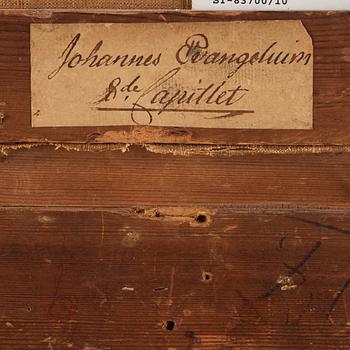 SI-83700/10
Johannes Evangelium
8de Capillet